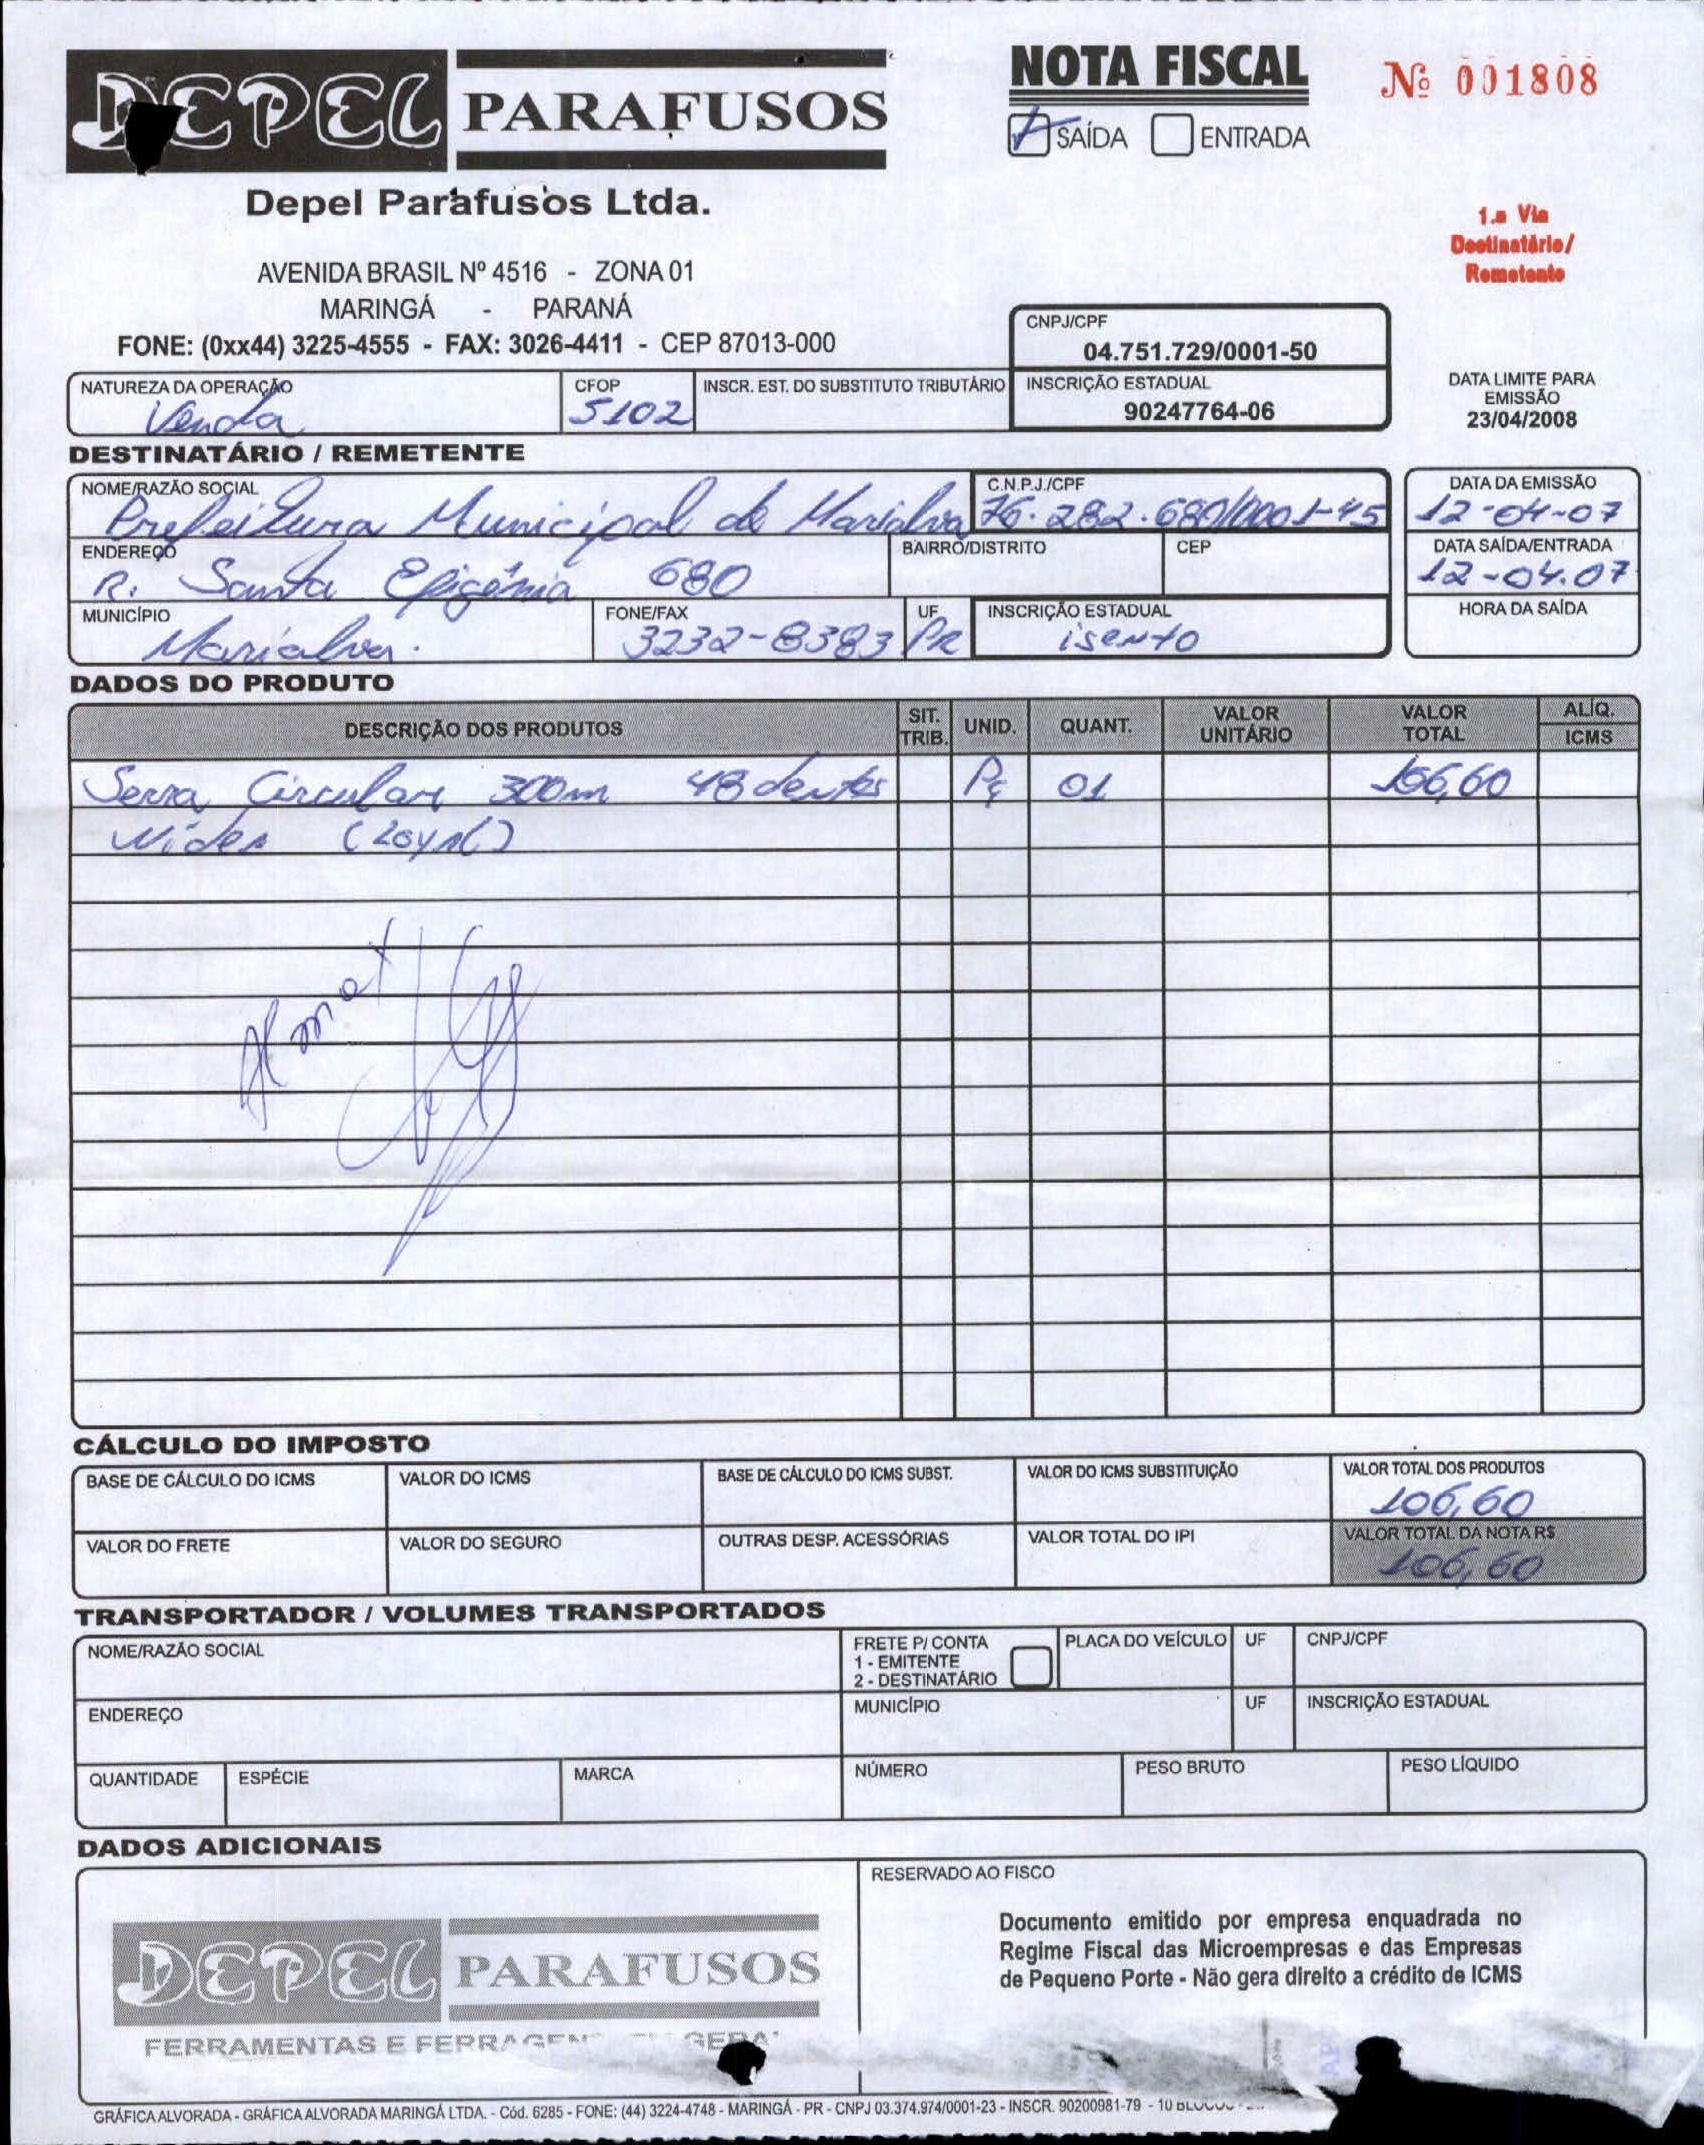 DEPEL PARAFUSOS
NOTA FISCAL
Nº 001808
SAÍDA ENTRADA
Depel Parafusos Ltda.
1.a Via
Destinatário/
Remetente
AVENIDA BRASIL Nº 4516 - ZONA 01
MARINGÁ - PARANÁ
FONE: (0xx44) 3225-4555 - FAX: 3026-4411 - CEP 87013-000
CNPJ/CPF
04.751.729/0001-50
NATUREZA DA OPERAÇÃO CFOP INSCR. EST. DO SUBSTITUTO TRIBUTÁRIO INSCRIÇÃO ESTADUAL
Venda 5102 90247764-06
DATA LIMITE PARA
EMISSÃO
23/04/2008
DESTINATÁRIO / REMETENTE
NOME/RAZÃO SOCIAL C.N.P.J./CPF DATA DA EMISSÃO
Prefeitura Municipal de Marialva 76.282.680/0001-45 12-04-07
ENDEREÇO BAIRRO/DISTRITO CEP DATA SAÍDA/ENTRADA
R. Santa Efigênia 680 12-04.07
MUNICÍPIO FONE/FAX UF INSCRIÇÃO ESTADUAL HORA DA SAÍDA
Marialva. 3232-8383 PR isento
DADOS DO PRODUTO
DESCRIÇÃO DOS PRODUTOS SIT. TRIB. UNID. QUANT. VALOR UNITÁRIO VALOR TOTAL ALÍQ. ICMS
Serra Circular 300m 48 dentes Pç 01 106,60
Almox
CÁLCULO DO IMPOSTO
BASE DE CÁLCULO DO ICMS VALOR DO ICMS BASE DE CÁLCULO DO ICMS SUBST. VALOR DO ICMS SUBSTITUIÇÃO VALOR TOTAL DOS PRODUTOS
106,60
VALOR DO FRETE VALOR DO SEGURO OUTRAS DESP. ACESSÓRIAS VALOR TOTAL DO IPI VALOR TOTAL DA NOTA R$
106,60
TRANSPORTADOR / VOLUMES TRANSPORTADOS
NOME/RAZÃO SOCIAL FRETE P/ CONTA PLACA DO VEÍCULO UF CNPJ/CPF
1 - EMITENTE
2 - DESTINATÁRIO
ENDEREÇO MUNICÍPIO UF INSCRIÇÃO ESTADUAL
QUANTIDADE ESPÉCIE MARCA NÚMERO PESO BRUTO PESO LÍQUIDO
DADOS ADICIONAIS
RESERVADO AO FISCO
Documento emitido por empresa enquadrada no
Regime Fiscal das Microempresas e das Empresas
de Pequeno Porte - Não gera direito a crédito de ICMS
DEPEL PARAFUSOS
FERRAMENTAS E FERRAGENS
GRÁFICA ALVORADA - GRÁFICA ALVORADA MARINGÁ LTDA. - Cód. 6285 - FONE: (44) 3224-4748 - MARINGÁ - PR - CNPJ 03.374.974/0001-23 - INSCR. 90200981-79 - 10 BLOCOS